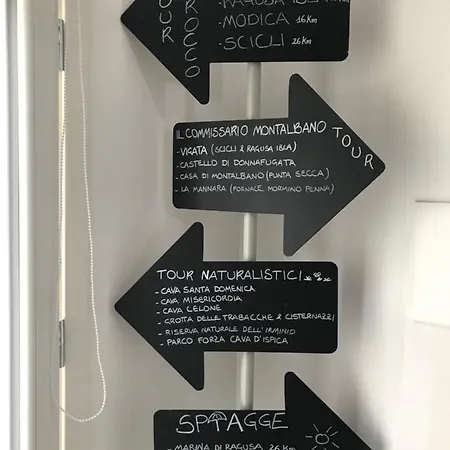 TOUR
BAROCCO
-RAGUSA IBLA
-MODICA 16Km
-SCICLI 26Km
IL COMMISSARIO MONTALBANO TOUR
-VIGATA (SCICLI & RAGUSA IBLA)
-CASTELLO DI DONNAFUGATA
-CASA DI MONTALBANO (PUNTA SECCA)
-LA MANNARA (FORNACE MORMINO PENNA)
TOUR NATURALISTICI
-CAVA SANTA DOMENICA
-CAVA MISERICORDIA
-CAVA CELONE
-GROTTA DELLE TRABACCHE & CISTERNAZZI
-RISERVA NATURALE DELL'IRMINIO
-PARCO FORZA CAVA D'ISPICA
SPIAGGE
-MARINA DI RAGUSA 26 Km